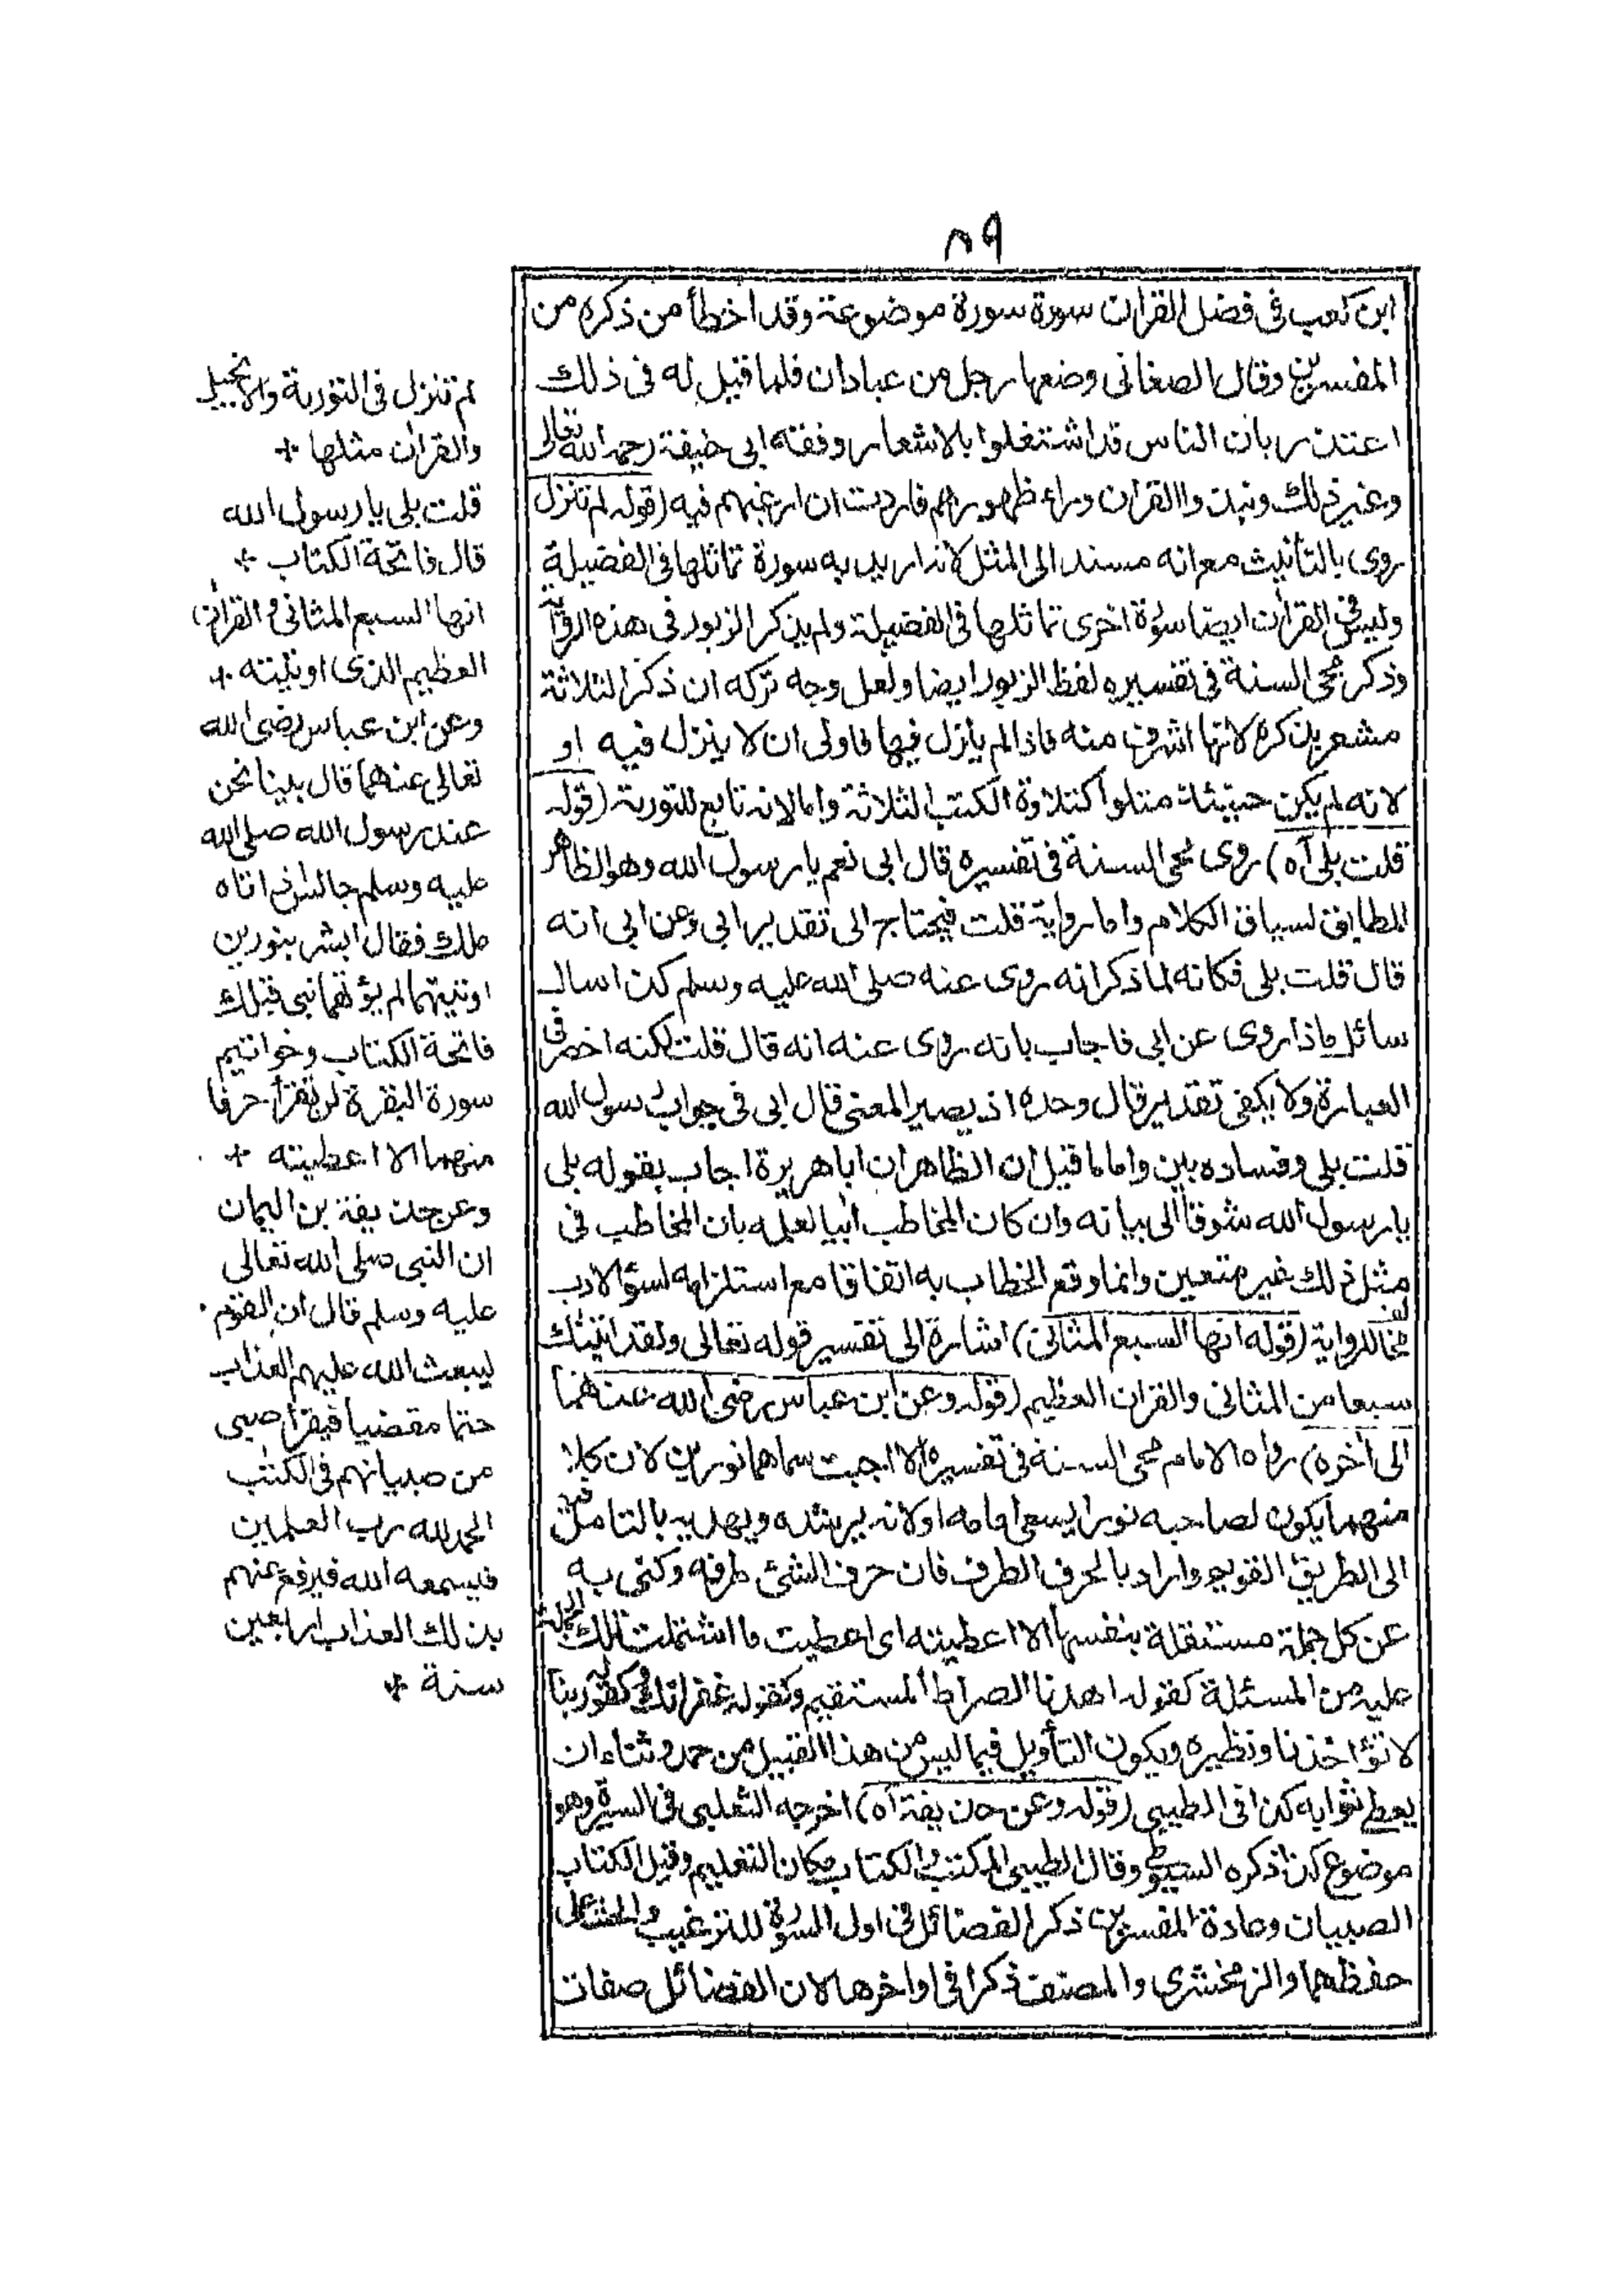 ٨٩
ابن كعب فى فضل القران سورة سورة موضوعة وقد اخطأ من ذكره من
المفسرين وقال الصغانى وضعها رجل من عبادان فلما قيل له فى ذلك
اعتذر بان الناس قد اشتغلوا بالاشعار وفقه ابى حنيفة رحمه الله تعالى
وغير ذلك ونبذوا القران وراء ظهورهم فاردت ان ارغبهم فيه (قوله لم تنزل
روى بالتأنيث مع انه مسند الى المثل لانه اريد به سورة تماثلها فى الفضيلة
وليس فى القران ايضا سورة اخرى تماثلها فى الفضيلة ولم يذكر الزبور فى هذه الرواية
وذكر محى السنة فى تفسيره لفظ الزبور ايضا ولعل وجه تركه ان ذكر الثلاثة
مشعر بذكره لانها اشرف منه فاذا لم ينزل فيها فاولى ان لا ينزل فيه او
لانه لم يكن حينئذ متلوا كتلاوة الكتب الثلاثة واما لانه تابع للتورية (قوله
قلت بلى آه) روى محى السنة فى تفسيره قال ابى نعم يا رسول الله وهو الظاهر
المطابق لسياق الكلام واما رواية قلت فيحتاج الى تقدير ابى وعن ابى انه
قال قلت بلى فكانه لما ذكر انه روى عنه صلى الله عليه وسلم كذا سال
سائل ماذا روى عن ابى فاجاب بانه روى عنه انه قال قلت لكنه اختصر فى
العبارة ولا يكفى تقدير قال وحده اذ يصير المعنى قال ابى فى جواب رسول الله
قلت بلى وفساده بين واما ما قيل ان الظاهر ان ابا هريرة اجاب بقوله بلى
يا رسول الله شوقا الى بيانه وان كان المخاطب ابيا لعله بان المخاطب فى
مثل ذلك غير متعين وانما وقع الخطاب به اتفاقا مع استلزامه لسؤ الادب
مخالف للرواية (قوله انها السبع المثانى) اشارة الى تفسير قوله تعالى ولقد اتينك
سبعا من المثانى والقران العظيم (قوله وعن ابن عباس رضى الله عنهما
الى آخره) رواه الامام محى السنة فى تفسيره الا اجيب سماهما نورين لان كلا
منهما يكون لصاحبه نورا يسعى امامه او لانه يرشده ويهديه بالتامل فيه
الى الطريق القويم واراد بالحرف الطرف فان حرف الشئ طرفه وكنى به
عن كل جملة مستقلة بنفسها الا اعطيته اى اعطيت ما اشتملت تلك الجملة
عليه من المسئلة كقوله اهدنا الصراط المستقيم وكقوله غفرانك وكقوله ربنا
لا تؤاخذنا ونظيره ويكون التأويل فيما ليس من هذا القبيل من حمد وثناء ان
يعطى ثوابه كذا فى الطيبى (قوله وعن حذيفة آه) اخرجه الثعلبى فى السيرة وهو
موضوع كذا ذكره السيوطى وقال الطيبى المكتب والكتاب مكان التعليم وقيل الكتاب
الصبيان وعادة المفسرين ذكر الفضائل فى اول السورة للترغيب والحث على
حفظهما والزمخشرى والمصنف ذكرا فى اواخرها لان الفضائل صفات
لم تنزل فى التورية والانجيل
والقران مثلها *
قلت بلى يا رسول الله
قال فاتحة الكتاب *
انها السبع المثانى والقران
العظيم الذى اوتيته *
وعن ابن عباس رضى الله
تعالى عنهما قال بينا نحن
عند رسول الله صلى الله
عليه وسلم جالس اذ اتاه
ملك فقال ابشر بنورين
اوتيتهما لم يؤتهما نبى قبلك
فاتحة الكتاب وخواتيم
سورة البقرة لن تقرأ حرفا
منهما الا اعطيته *
وعن حذيفة بن اليمان
ان النبى صلى الله تعالى
عليه وسلم قال ان القوم
ليبعث الله عليهم العذاب
حتما مقضيا فيقرأ صبى
من صبيانهم فى الكتب
الحمد لله رب العلمين
فيسمعه الله فيرفع عنهم
بذلك العذاب اربعين
سنة *